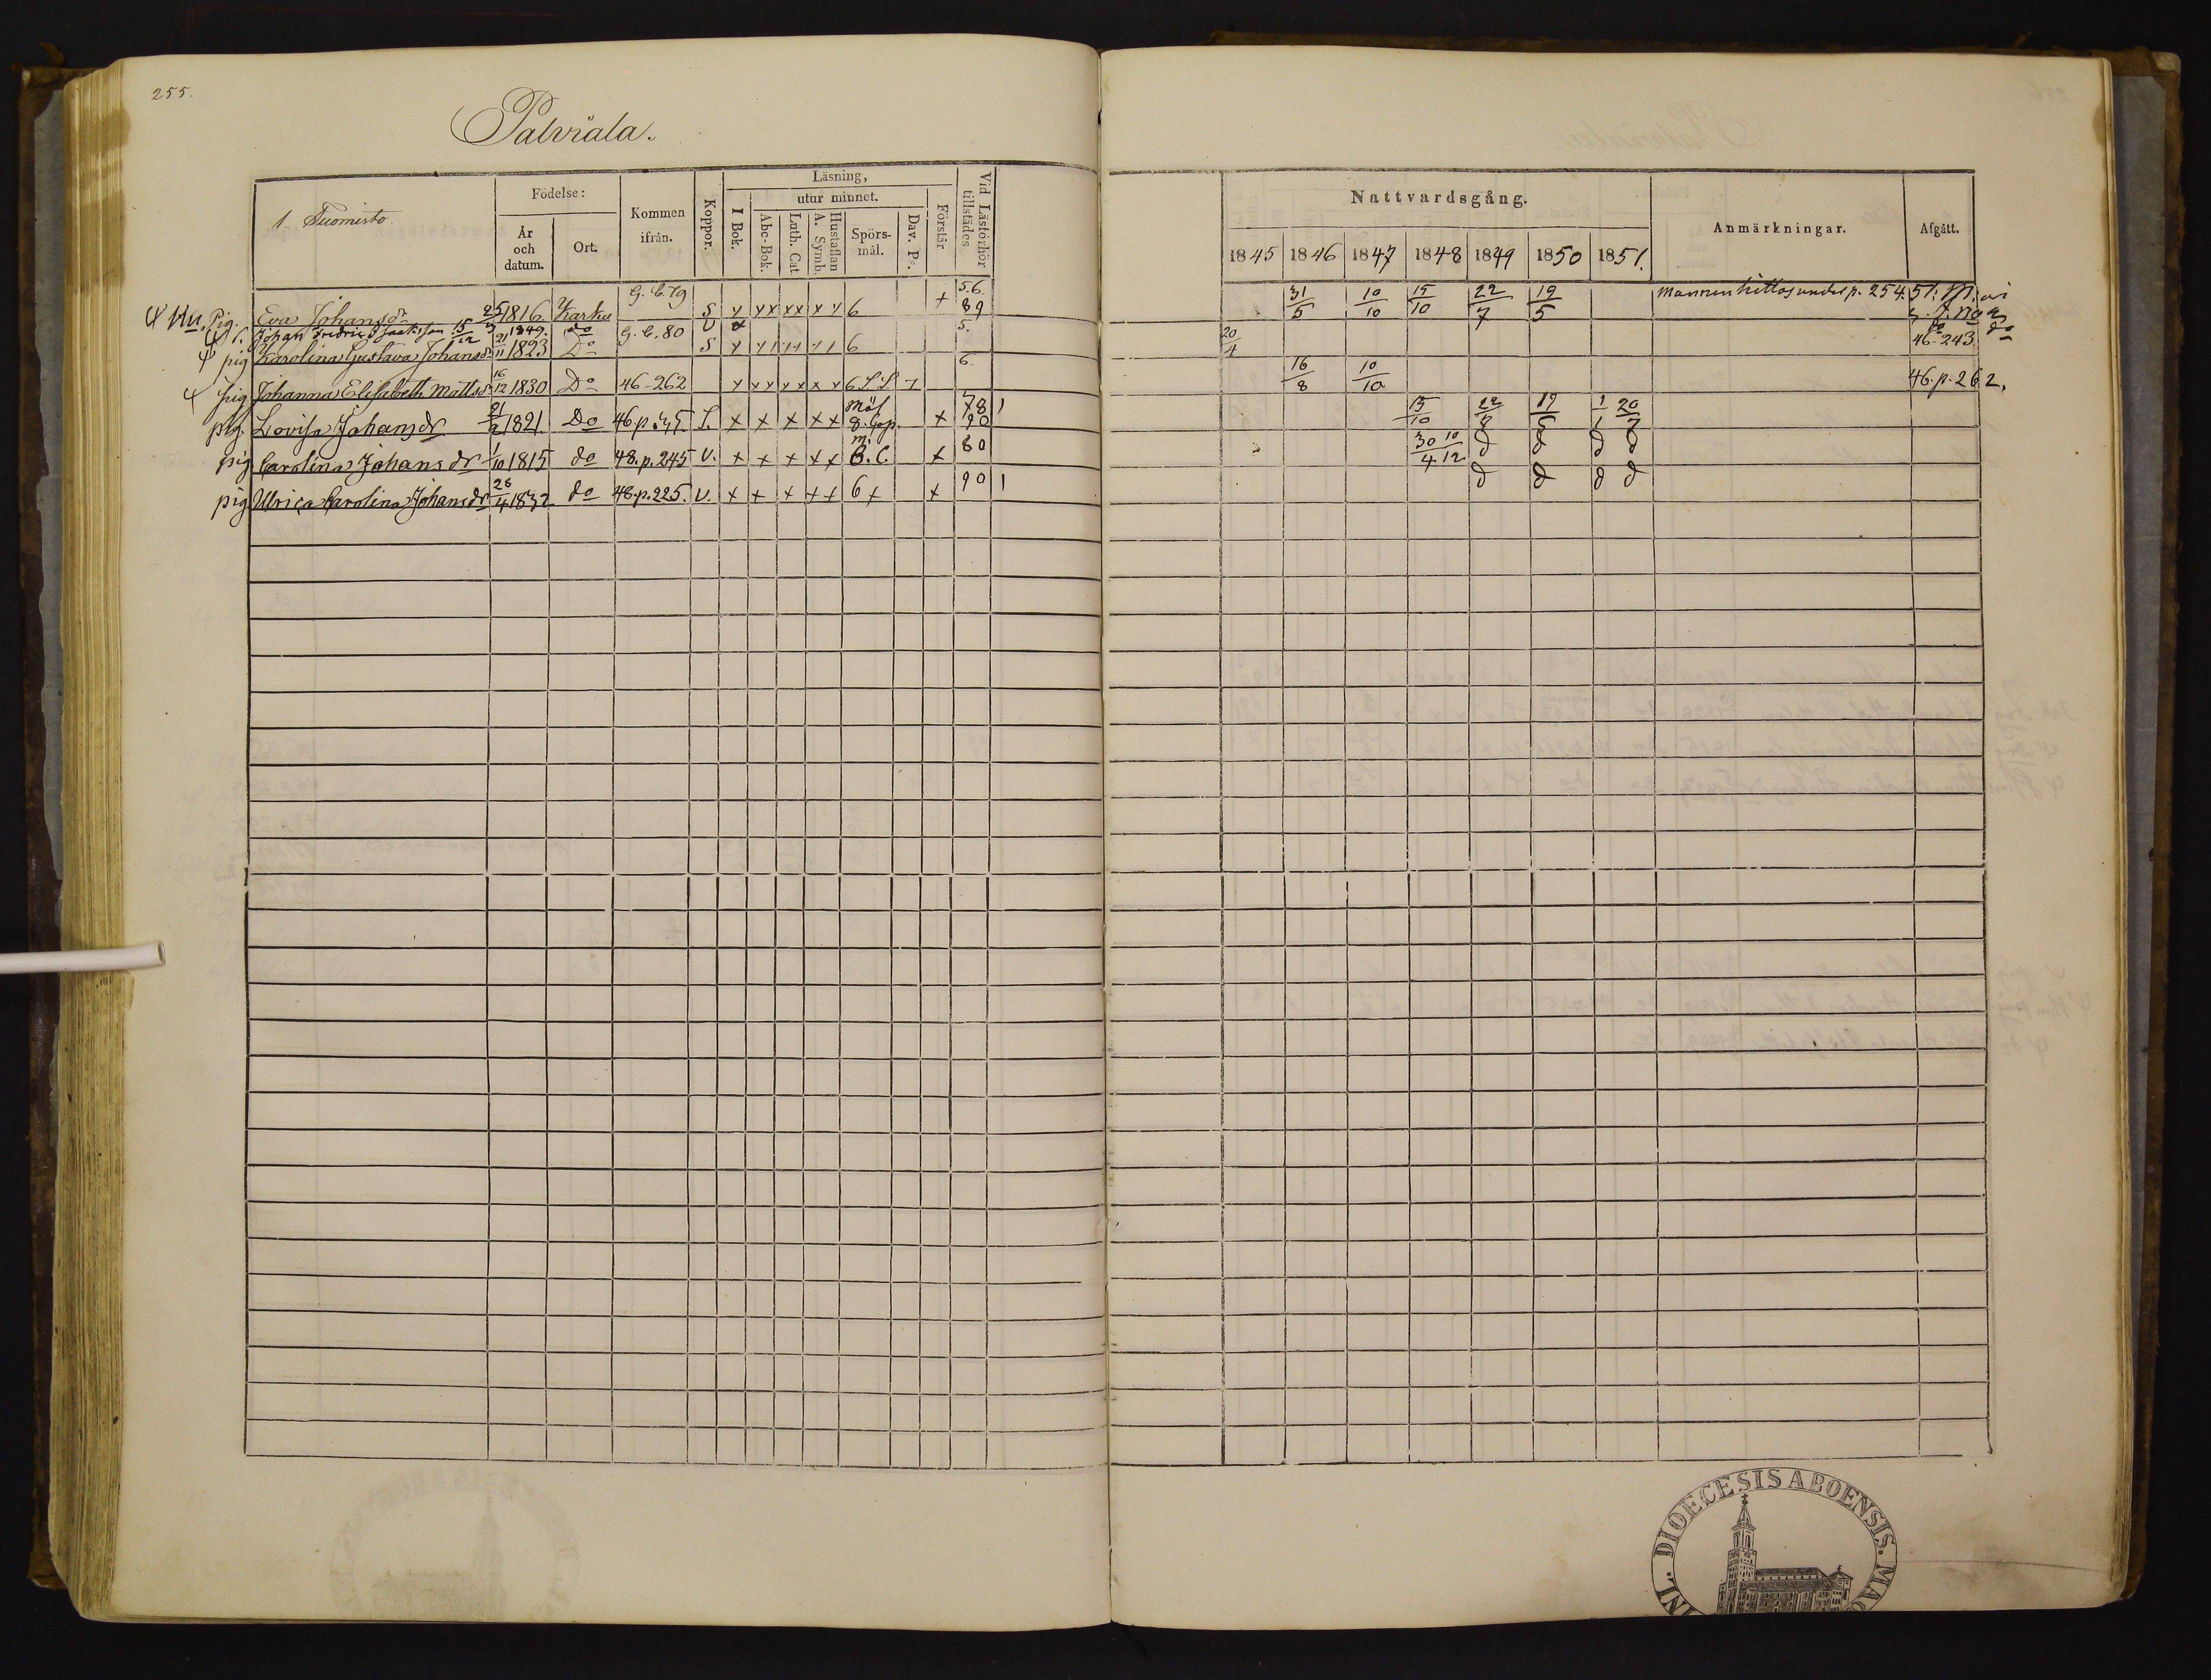 255.
Palviala.
1 Tuomisto.
Födelse:
År och datum.
Ort.
Kommen ifrån.
Koppor.
Läsning,
I Bok.
utur minnet.
Abc-Bok.
Luth. Cat.
Hustaflan A. Symb.
Spörs-mål.
Dav. Ps.
Förstår
Vid Läsförhör tillstädes
Nattvardsgång.
1845 1846 1847 1848 1849 1850 1851.
Anmärkningar.
Afgått.
Pig. Eva Johansdr 1816 Karku G. C. 79 S 6 + 5.6. 89 31/5 10/10 15/10 22/7 19/5 Mannen hittas under p. 254. 51.
Johan Fredric 15/12 1849. do V 5.
pig Karolina Gustava Johansdr 21/11 1823 Do G. C. 80 S 6 20/4 46-243 do
pig Johanna Elisabeth Mattsdr 16/12 1830 Do 46-262 6 6. 16/8 10/10 46. p. 262.
pig. Lovisa Johansdr 1821 Do 46. p. x x x x x 8. x 78 90 15/10 22 19 1 20
pig Carolina Johansdr 1/10 1815 do 48. p. 245 V. x x x x x B. C. x 80 30/4 10/12 d d d d
pig Ulrica Carolina Johansdr 26/4 1832 do 48. p. 225. V. x x x x x 6 x x 90 d d d d
DIOECESIS ABOENSIS.